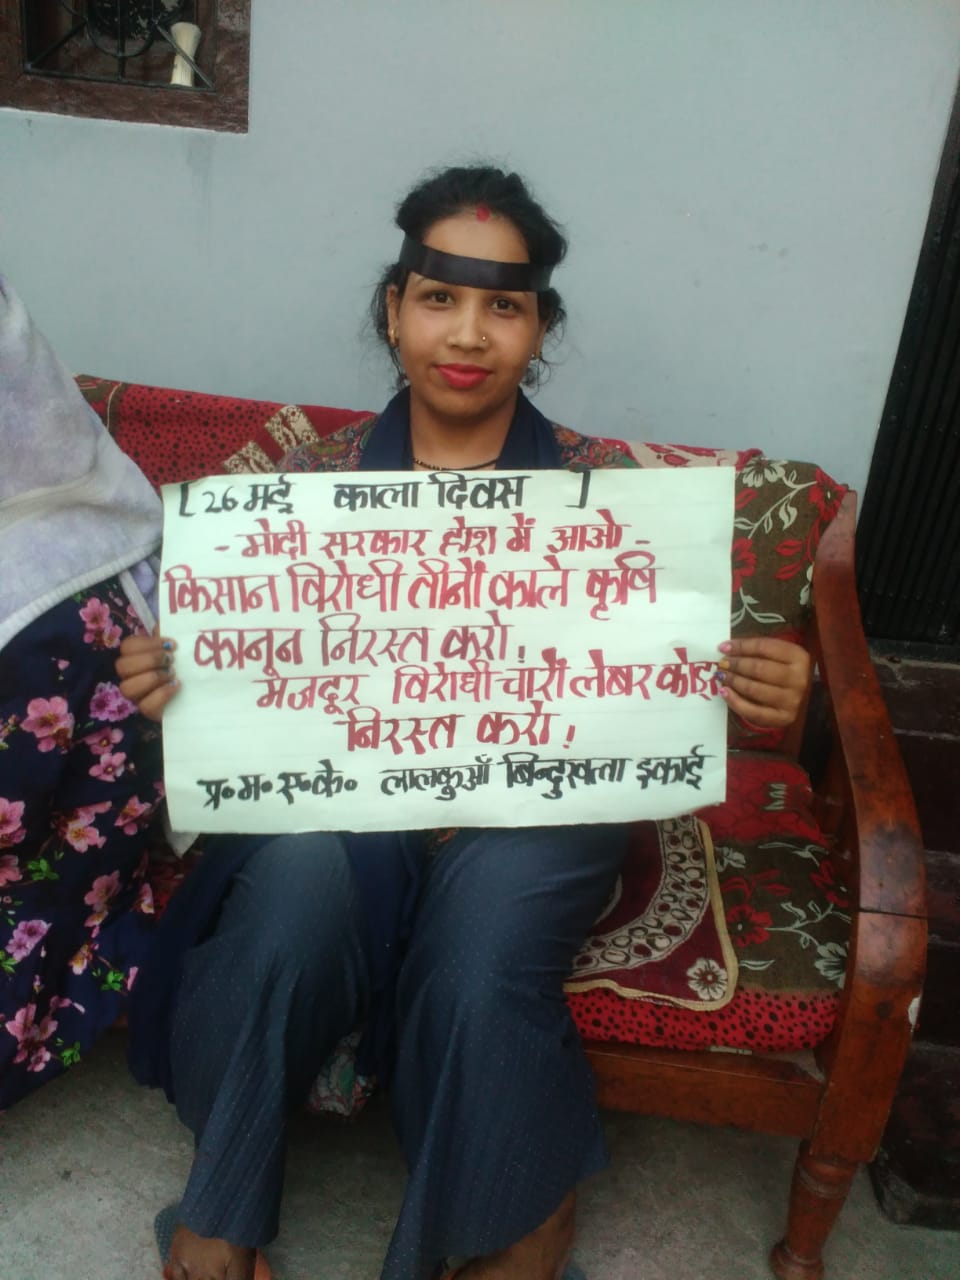 [ 26 मई काला दिवस ]
- मोदी सरकार होश में आओ -
किसान विरोधी तीनों काले कृषि
कानून निरस्त करो!
मजदूर विरोधी चारों लेबर कोड्स
निरस्त करो!
प्र॰म॰ए॰के॰ लालकुआँ बिन्दुखत्ता इकाई